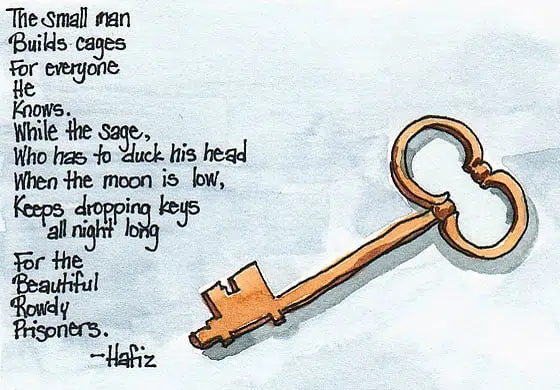 The small man
Builds cages
For everyone
He
Knows.
While the sage,
Who has to duck his head
When the moon is low,
Keeps dropping keys
all night long
For the
Beautiful
Rowdy
Prisoners.
-Hafiz